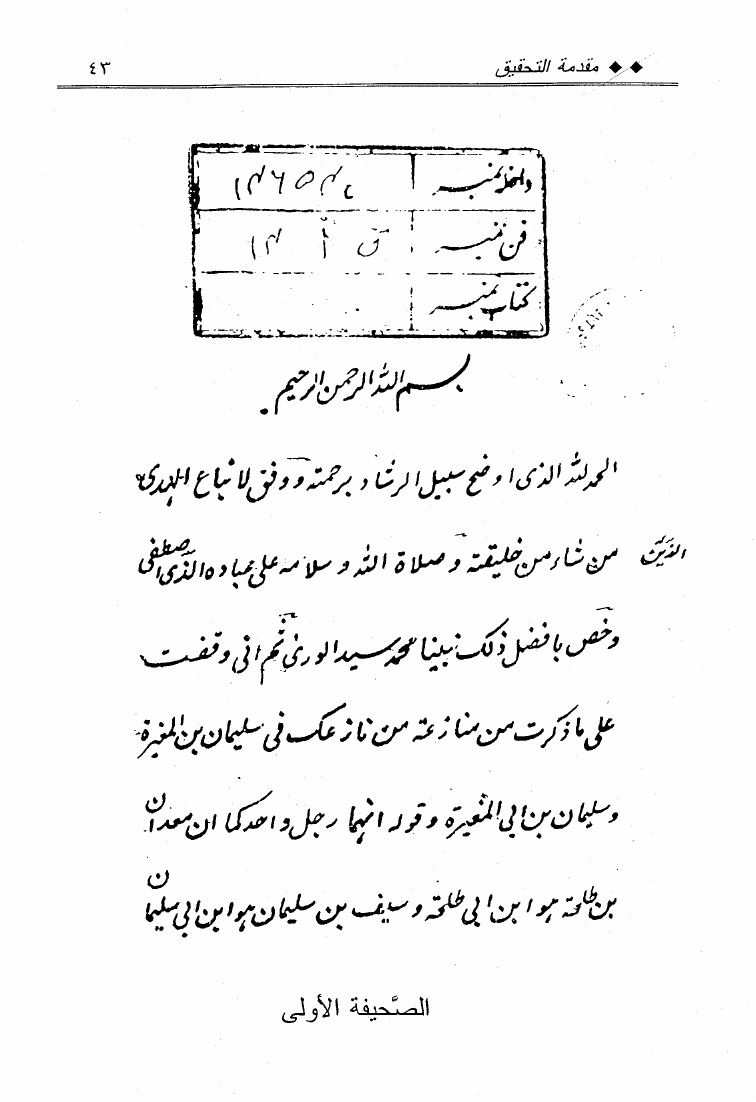 مقدمة التحقيق ٤٣
داخله نمبر
فن نمبر
کتاب نمبر
بسم الله الرحمن الرحيم.
الحمد لله الذى اوضح سبيل الرشاد برحمته ووفق لاتباع الهدى
من شاء من خليقته وصلاة الله وسلامه على عباده الذين اصطفى
الذين
وخص بافضل ذلك نبينا محمد سيد الورى ثم انى وقفت
على ما ذكرت من منازعة من نازعك فى سليمان بن المغيرة
وسليمان بن ابى المغيرة وقوله انهما رجل واحد كما ان معدان
بن طلحة هو ابن ابى طلحة وسيف بن سليمان هو ابن ابى سليمان
الصَّحيفة الأولى